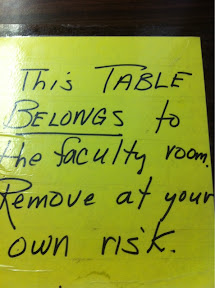 This TABLE
BELONGS to
the faculty room.
Remove at your
own risk.